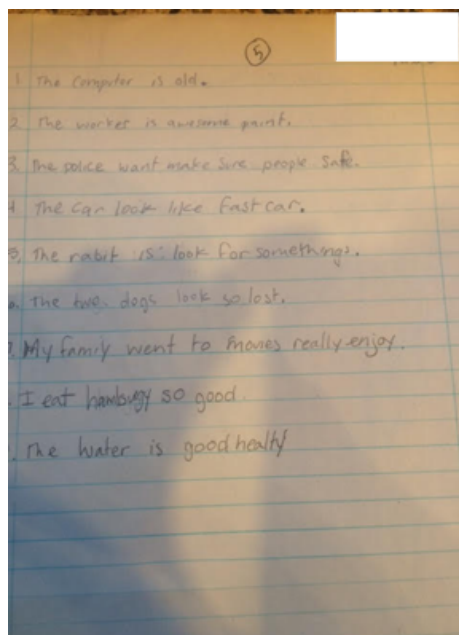 5
1 The Computer is old.
2 The worker is awesome paint.
3. The police want make sure people safe.
4 The car look like fast car.
5. The rabit is look for somethings.
The two dogs look so lost.
My family went to movies really enjoy.
I eat so good.
The water is good healty